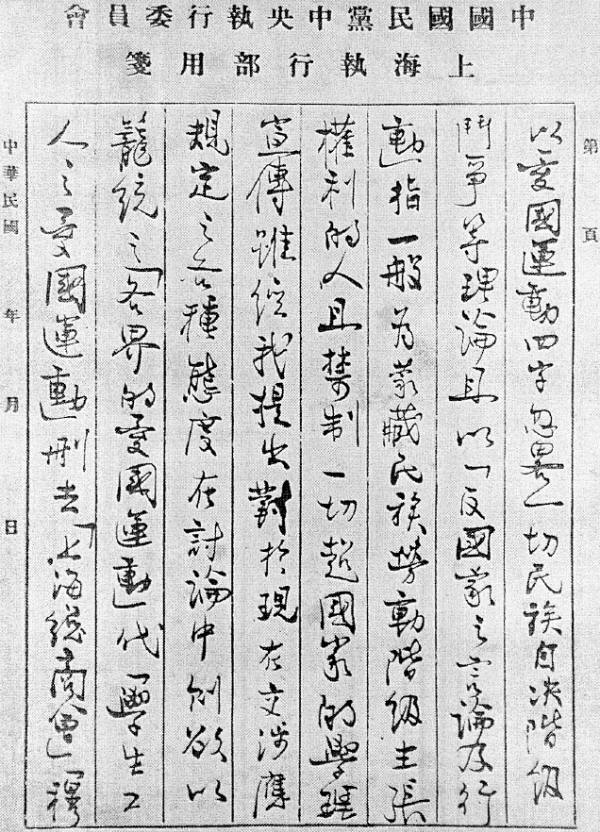 中國國民黨中央執行委員會
上海執行部用箋
第 頁
以愛國運動四字忽畧一切民族自决階級
鬥爭等理論且以「反國家之言論及行
動」指一般為蒙藏民族勞動階級主張
權利的人且禁制一切超國家的學理
宣傳雖經我提出對於現在交涉應
規定之各種態度在討論中則欲以
籠統之「各界的愛國運動」代「學生工
人之愛國運動」刪去「上海總商會」
中華民國 年 月 日